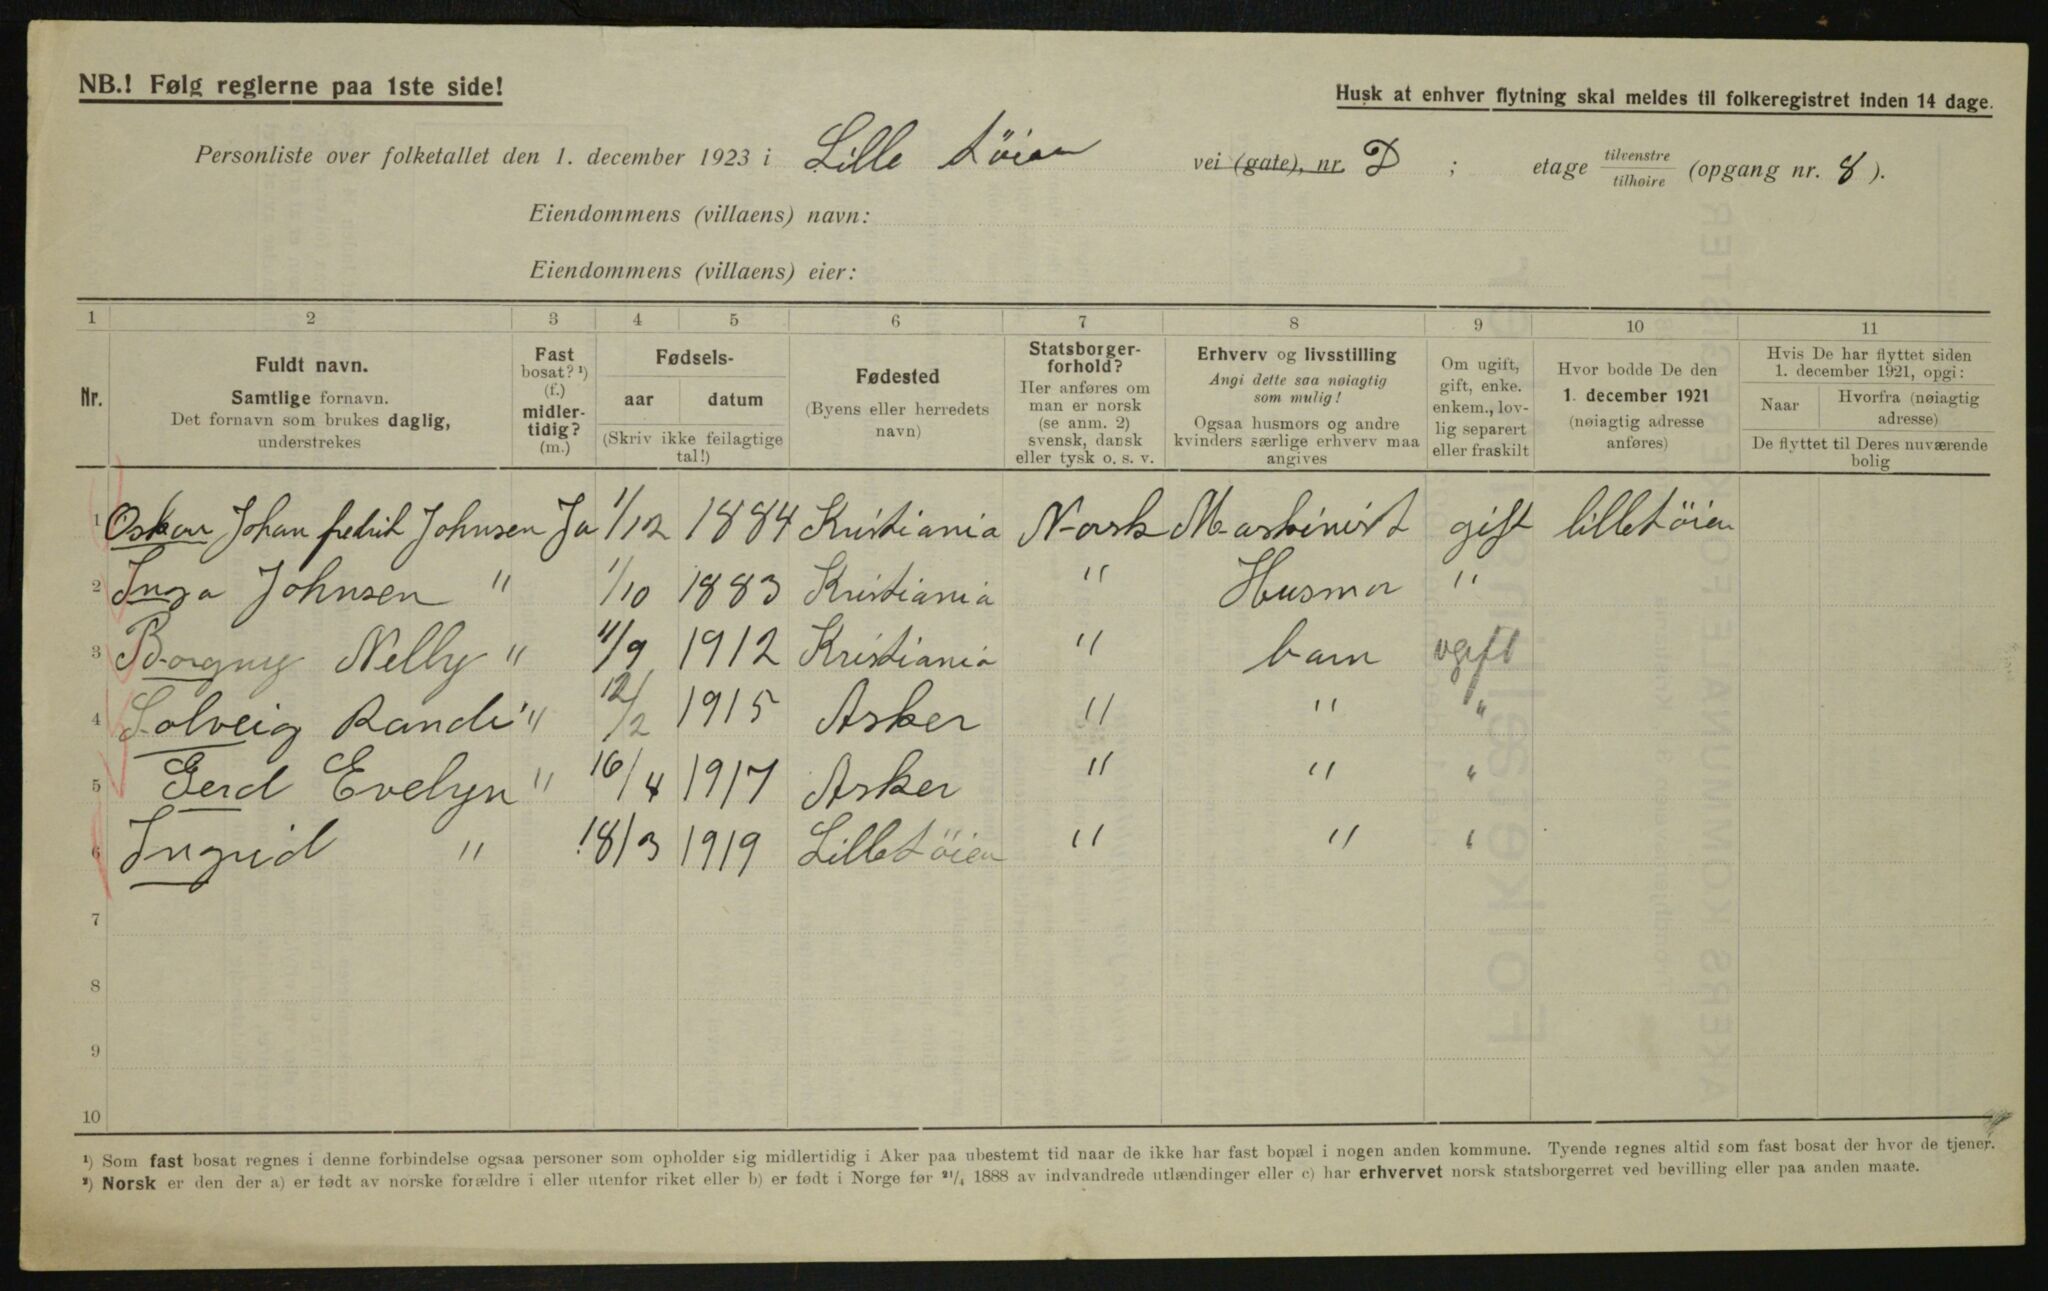 NB.! Følg reglerne paa 1ste side!
Husk at enhver flytning skal meldes til folkeregistret inden 14 dage.
Personliste over folketallet den 1. december 1923 i Lille tøien vei (gate), nr. D ; etage tilvenstre tilhøire (opgang nr. 8).
Eiendommens (villaens) navn:
Eiendommens (villaens) eier:
1 2 3 4 5 6 7 8 9 10 11
Nr.
Fuldt navn.
Samtlige fornavn.
Det fornavn som brukes daglig,
understrekes
Fast
bosat? ¹)
(f.)
midler-
tidig?
(m.)
Fødsels-
aar datum
(Skriv ikke feilagtige
tal!)
Fødested
(Byens eller herredets
navn)
Statsborger-
forhold?
Her anføres om
man er norsk
(se anm. 2)
svensk, dansk
eller tysk o. s. v.
Erhverv og livsstilling
Angi dette saa nøiagtig
som mulig!
Ogsaa husmors og andre
kvinders særlige erhverv maa
angives
Om ugift,
gift, enke.
enkem., lov-
lig separert
eller fraskilt
Hvor bodde De den
1. december 1921
(nøiagtig adresse
anføres)
Hvis De har flyttet siden
1. december 1921, opgi:
Naar
Hvorfra (nøiagtig
adresse)
De flyttet til Deres nuværende
bolig
1 Oskar Johan fredrik Johnsen Ja 1/12 1884 Kristiania Norsk Maskinist gift lilletøien
2 Inga Johnsen " 1/10 1883 Kristiania " Husmor "
3 Borgny Nelly " 11/9 1912 Kristiania " barn ugift
4 Solveig Randi " 12/2 1915 Asker " " "
5 Gerd Evelyn " 16/4 1917 Asker " " "
6 Ingrid " 18/3 1919 Lilletøien " " "
7
8
9
10
¹) Som fast bosat regnes i denne forbindelse ogsaa personer som opholder sig midlertidig i Aker paa ubestemt tid naar de ikke har fast bopæl i nogen anden kommune. Tyende regnes altid som fast bosat der hvor de tjener.
²) Norsk er den der a) er født av norske forældre i eller utenfor riket eller b) er født i Norge før ²¹/₄ 1888 av indvandrede utlændinger eller c) har erhvervet norsk statsborgerret ved bevilling eller paa anden maate.